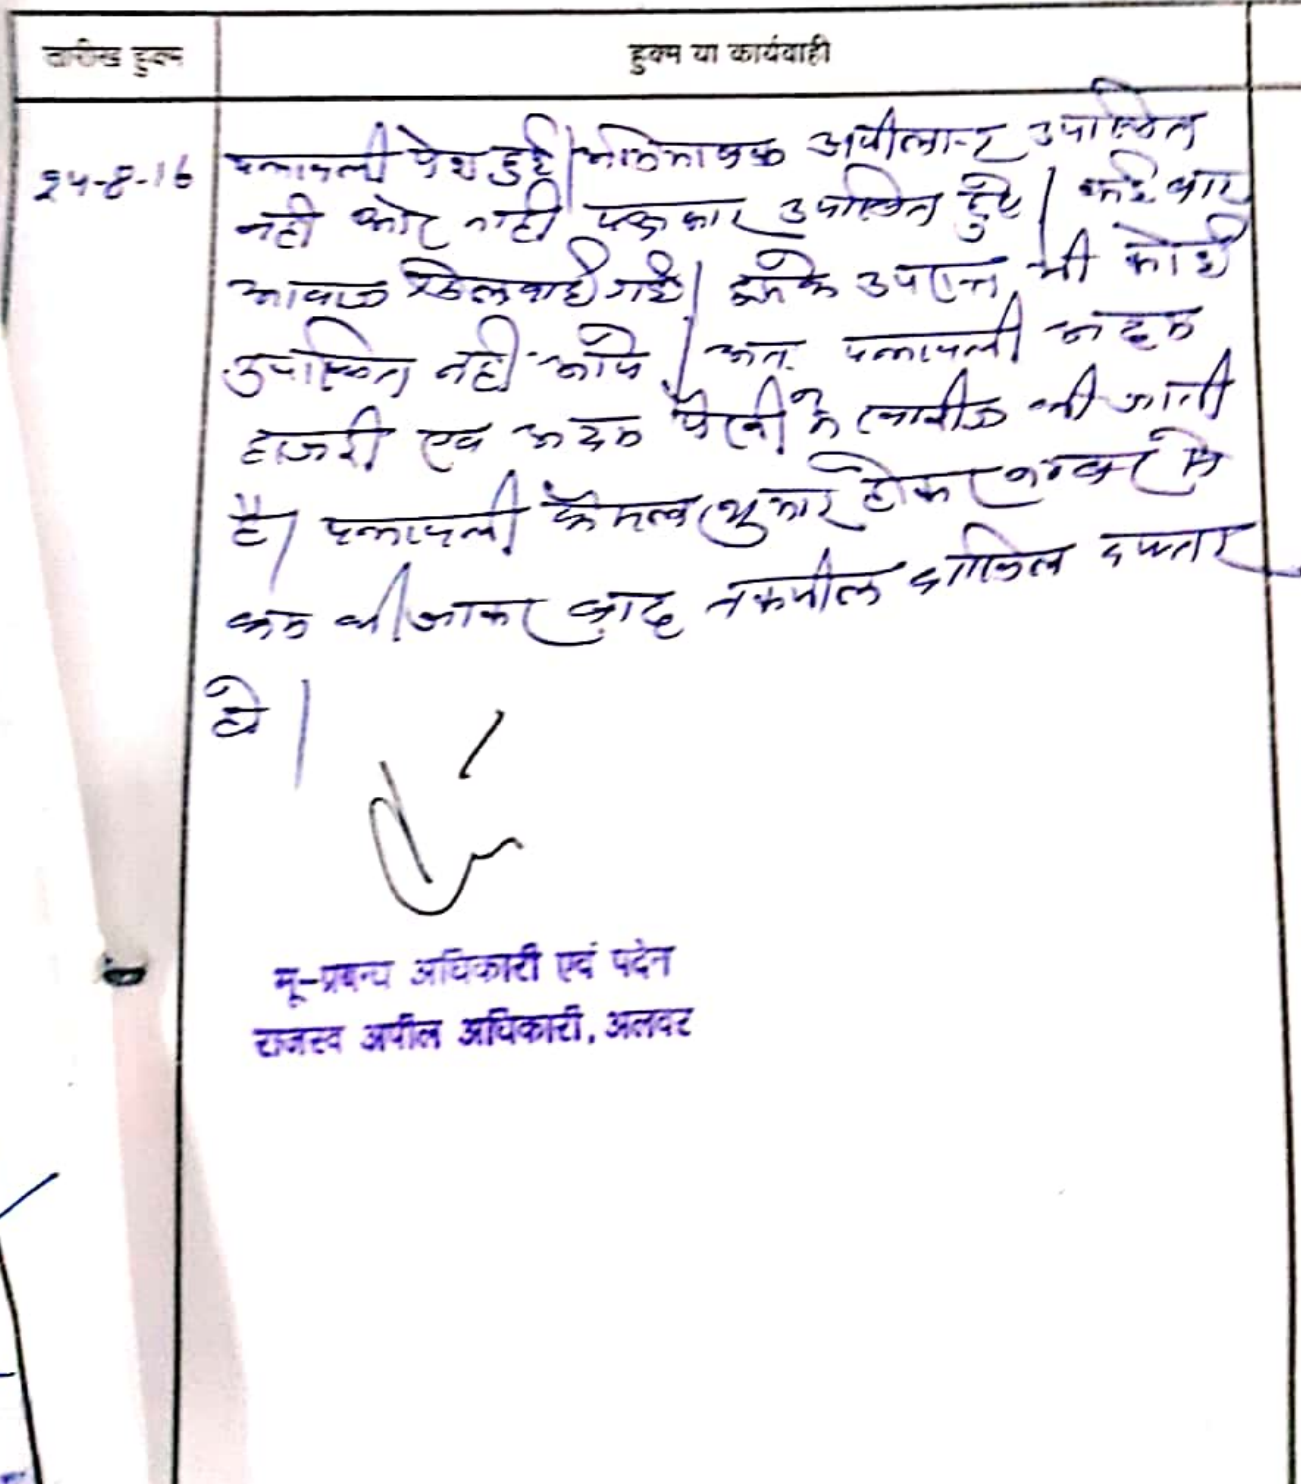 तारीख हुक्म
हुक्म या कार्यवाही
24-8-16
पत्रावली पेश हुई। अभिभाषक अपीलान्ट उपस्थित
नही और नाही पक्षकार उपस्थित हुए। कई बार
आवाज दिलवाई गई। इसके उपरान्त भी कोई
उपस्थित नही आये। अतः पत्रावली अदम
हाजरी एवं अदम पैरवी मे खारीज की जाती
है। पत्रावली फैसल शुमार होकर नम्बर से
कम की जाकर बाद तकमील दाखिल दफ्तर
हो।
भू-प्रबन्ध अधिकारी एवं पदेन
राजस्व अपील अधिकारी, अलवर